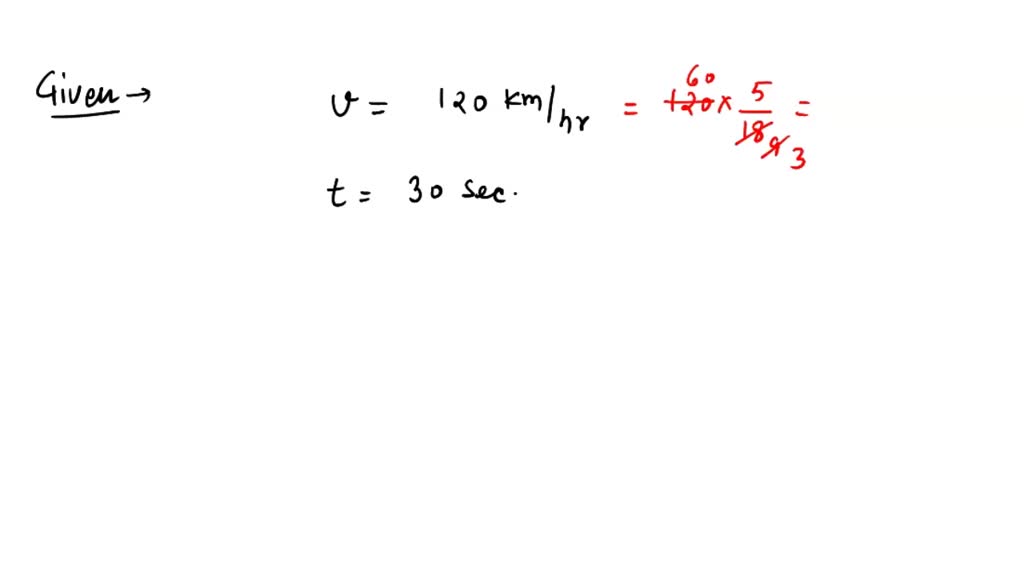 Given → v = 120 km/hr = 120 60 × 5/18 9 3 =
t = 30 sec.